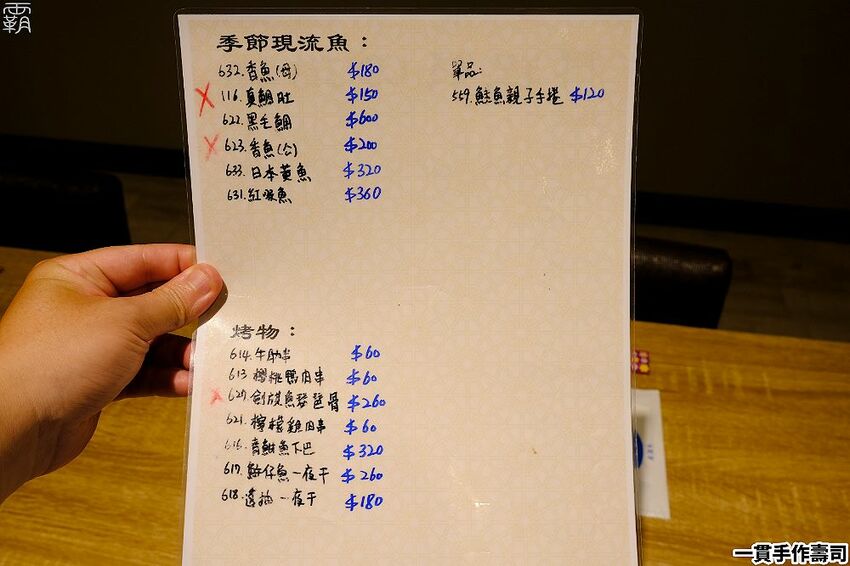 霸
季節現流魚：
632.香魚(母) $180
116.真鯛肚 $150
622.黑毛鯛 $600
623.香魚(公) $200
633.日本黃魚 $320
631.紅喉魚 $360
單品:
559.鮭魚親子手捲 $120
烤物：
614.牛肋串 $60
613.櫻桃鴨肉串 $60
627.劍旗魚琵琶骨 $260
621.檸檬雞肉串 $60
616.青魽魚下巴 $320
617.魚一夜干 $260
618.透抽一夜干 $180
一貫手作壽司